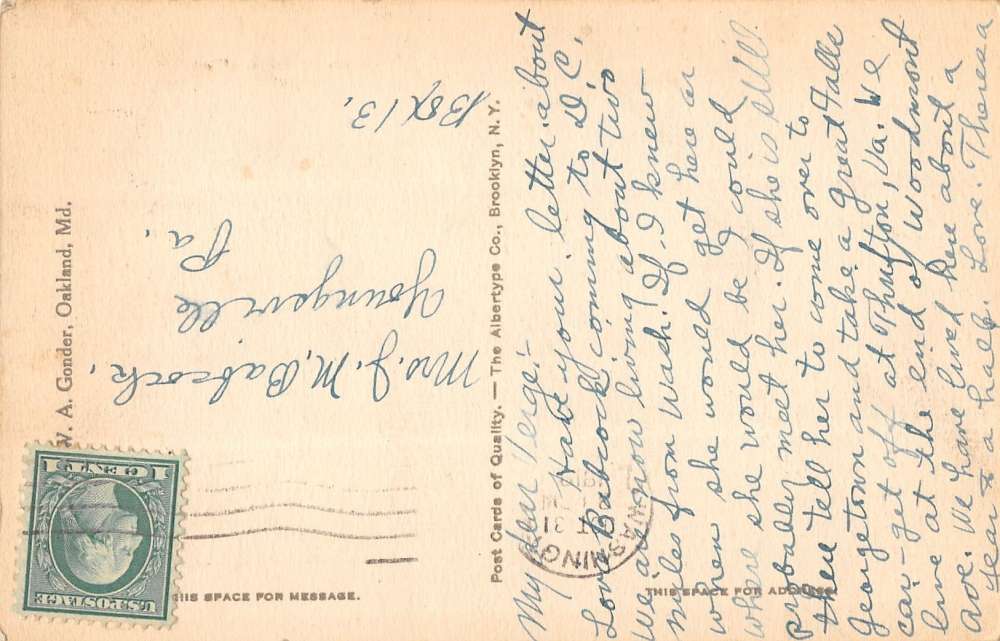 My Dear Verge:-
Had your letter about
Love Babcock coming to D.C.
We are now living about two
miles from Wash. If I knew
when she would get here or
where she would be I could
probbally meet her. If she is still
there tell her to come over to
Georgetown and take a Great Falls
car - get off at Thrifton, Va. We
live at the end of Woodmont
Ave. We have lived here about a
year & a half. Love. Theresa
Mrs. J. M. Babcock.
Youngsville
Pa.
Box 13,
W. A. Gonder, Oakland, Md.
Post Cards of Quality. — The Albertype Co., Brooklyn, N. Y.
THIS SPACE FOR MESSAGE.
THIS SPACE FOR ADDRESS.
U.S. POSTAGE
1 CENT 1
WASHING
31